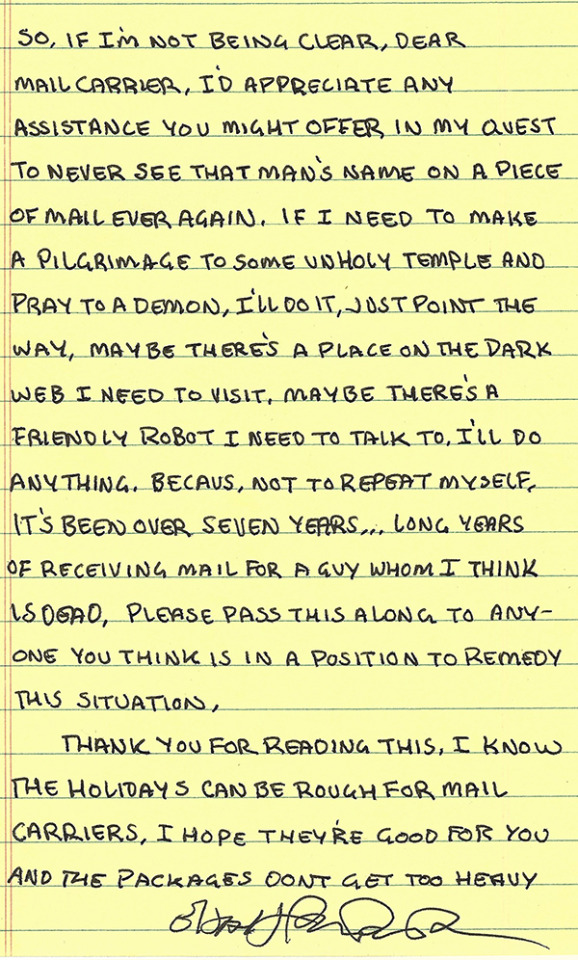 SO, IF I'M NOT BEING CLEAR, DEAR
MAIL CARRIER, I'D APPRECIATE ANY
ASSISTANCE YOU MIGHT OFFER IN MY QUEST
TO NEVER SEE THAT MAN'S NAME ON A PIECE
OF MAIL EVER AGAIN. IF I NEED TO MAKE
A PILGRIMAGE TO SOME UNHOLY TEMPLE AND
PRAY TO A DEMON, I'LL DO IT, JUST POINT THE
WAY, MAYBE THERE'S A PLACE ON THE DARK
WEB I NEED TO VISIT. MAYBE THERE'S A
FRIENDLY ROBOT I NEED TO TALK TO. I'LL DO
ANYTHING. BECAUS, NOT TO REPEAT MYSELF,
IT'S BEEN OVER SEVEN YEARS... LONG YEARS
OF RECEIVING MAIL FOR A GUY WHOM I THINK
IS DEAD, PLEASE PASS THIS ALONG TO ANY-
ONE YOU THINK IS IN A POSITION TO REMEDY
THIS SITUATION,
THANK YOU FOR READING THIS, I KNOW
THE HOLIDAYS CAN BE ROUGH FOR MAIL
CARRIERS, I HOPE THEY'RE GOOD FOR YOU
AND THE PACKAGES DONT GET TOO HEAVY